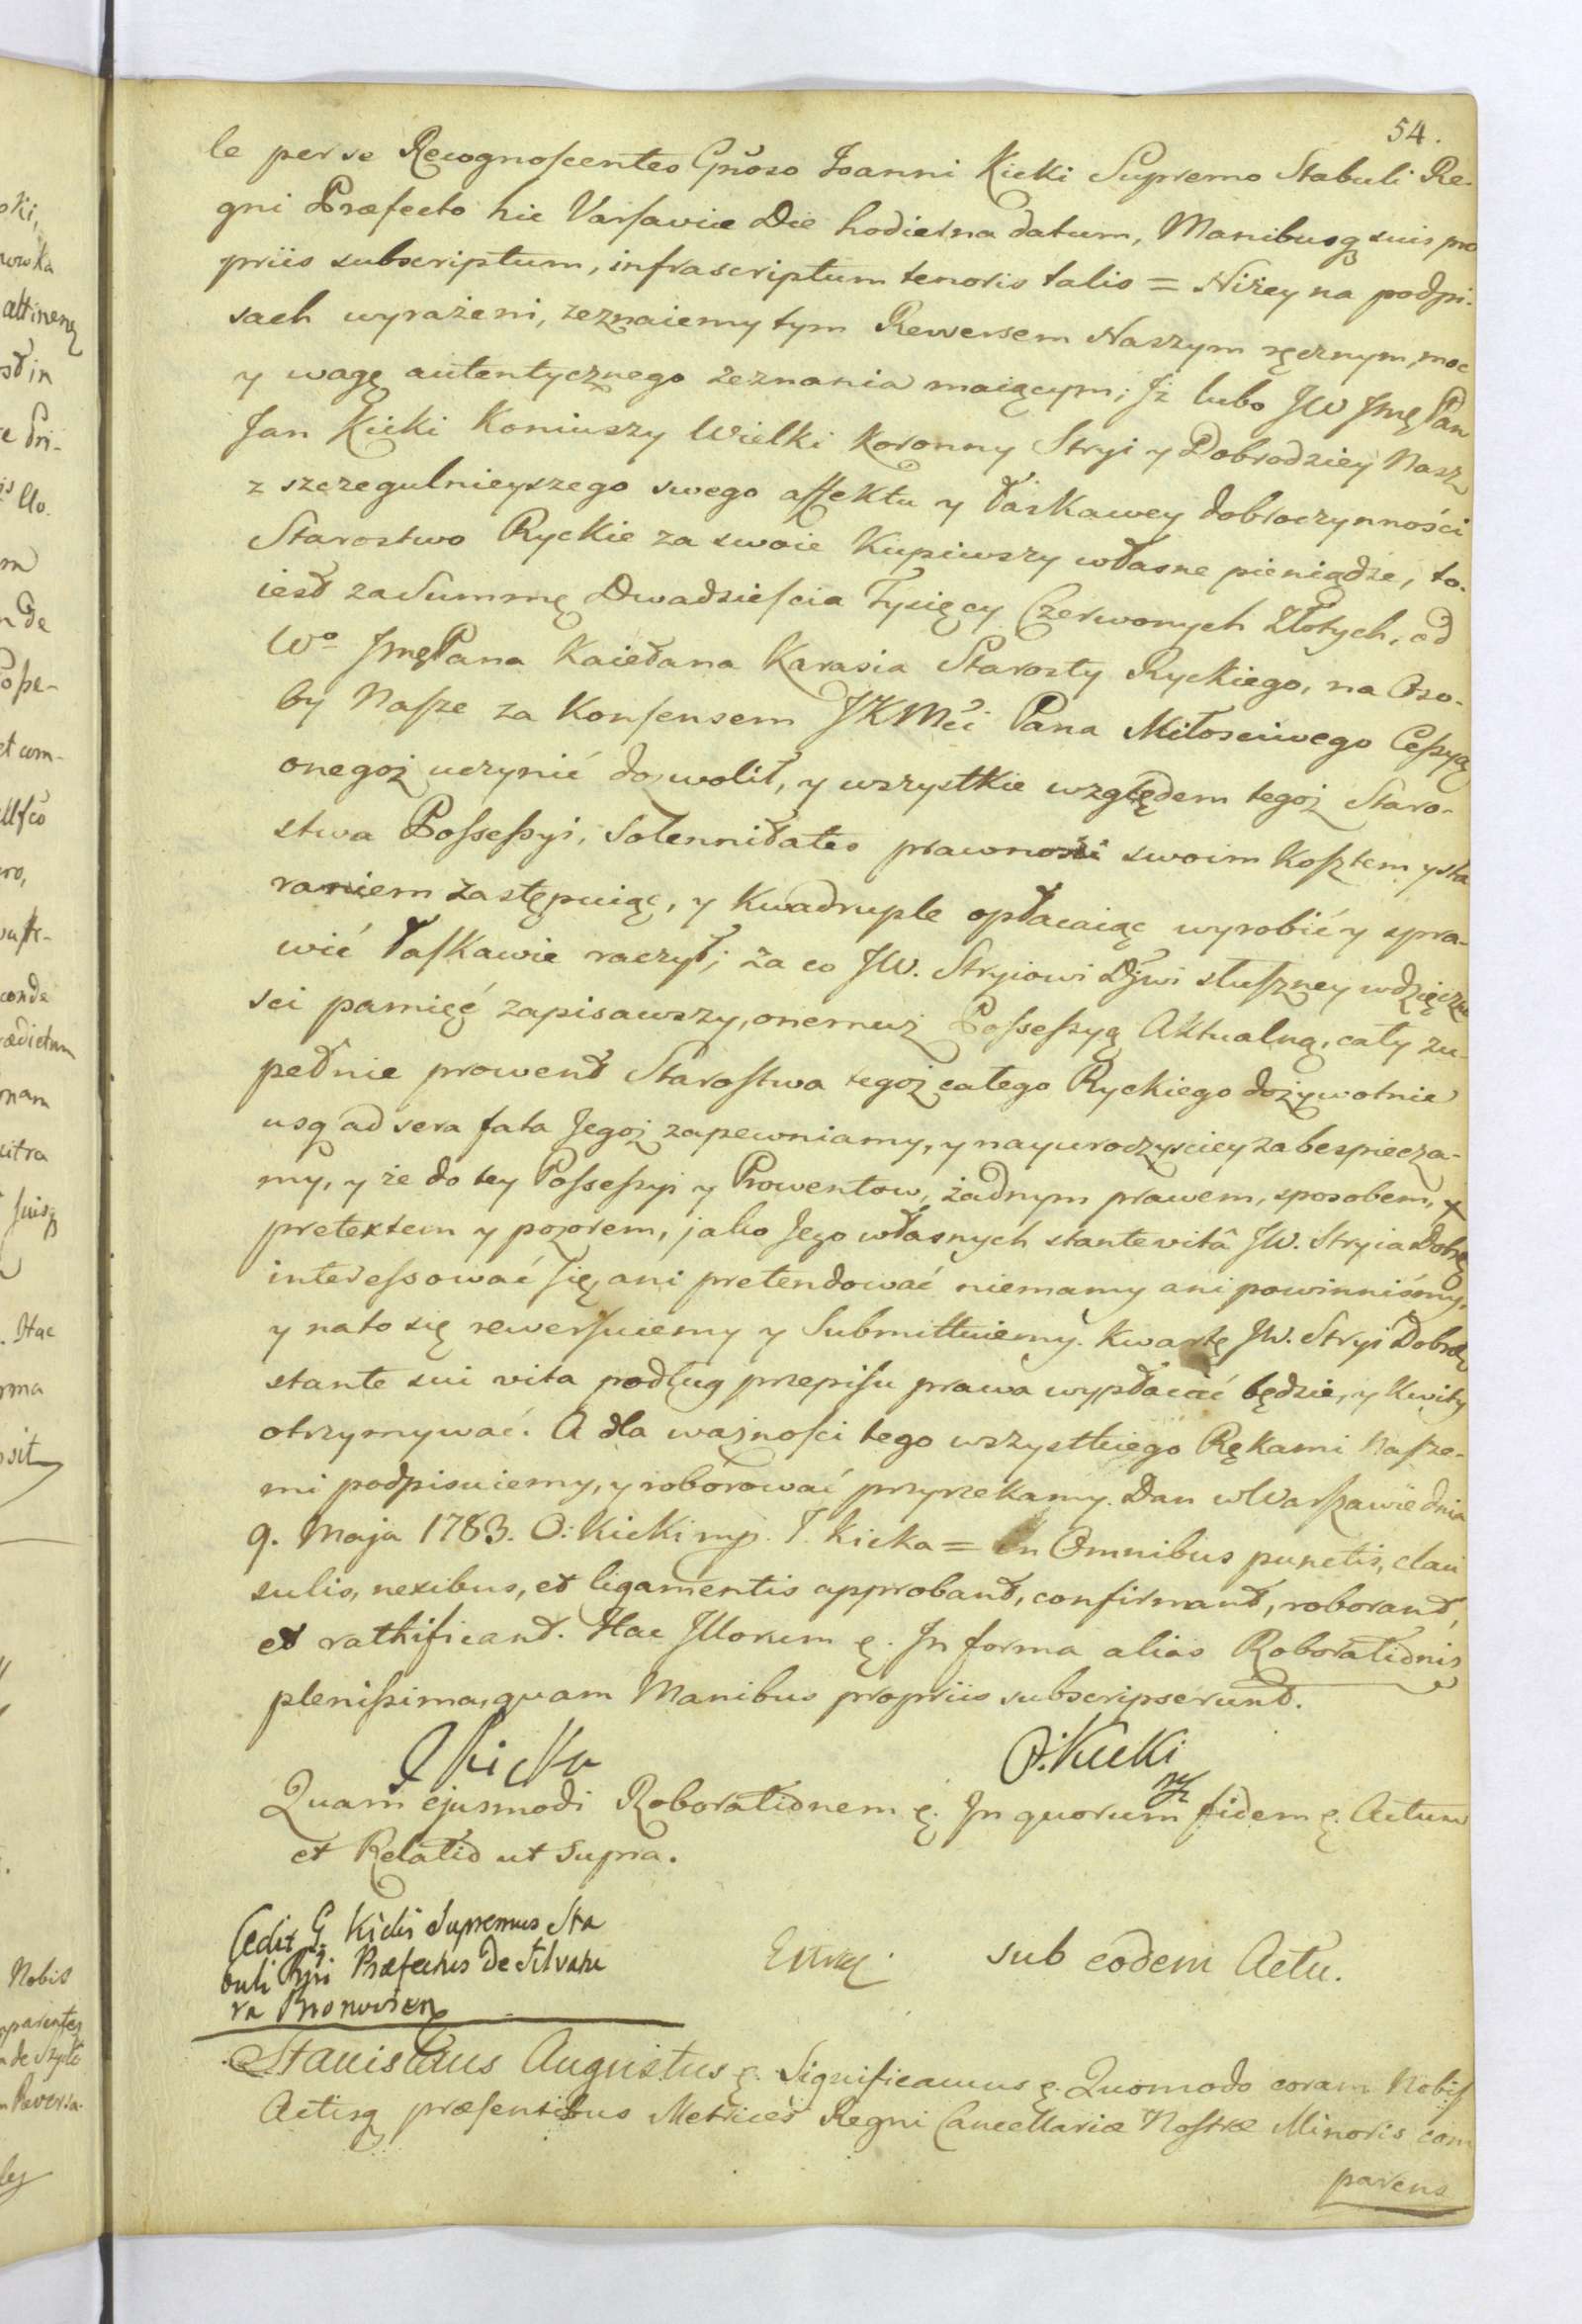 54.
le per se Recognoscentes Gnoso Joanni Kicki Supremo Stabuli Re-
gni Præfecto hic Varsaviæ Die hodierna datum, Manibusq suis pro
priis subscriptum, infrascriptum tenoris talis = Niżey na podpi-
sach wyrażeni, zeznaiemy tym Rewersem Naszym ręcznym, moc
y wagę autentycznego zeznania maiącym; Jż lubo JW Jmę Pan
Jan Kicki Koniuszy Wielki Koronny Stryi y Dobrodziey Nasz
z szczegulnieyszego swego affektu y łaskawey dobroczynności
Starostwo Ryckie za swoie Kupiwszy własne pieniądze, to-
iest za Summę Dwadzieścia Tysięcy Czerwonych Złotych, od
Wo Jmę Pana Kaietana Karasia Starosty Ryckiego, na Oso-
by Nasze za Konsensem JKMci Pana Miłosciwego Cessyą
onegoż uczynić dozwolił, y wszystkie względem tegoż Staro-
stwa Possessyi, Solennitates prawności swoim Kosztem y sta
raniem zastępuiąc, y Kwadruple opłacaiąc wyrobić y spra-
wić łaskawie raczył; za co JW. Stryiowi Djwi słuszney wdzięczno
sci pamięć zapisawszy, onemuż Possessyą Aktualną, cały zu-
pełnie prowent Starostwa tegoż całego Ryckiego dożywotnie
usq ad sera fata Jegoż zapewniamy, y nayuroczyściey zabespiecza-
my, y że do tey Possessyi y Prowentow, żadnym prawem, sposobem,
pretextem y pozorem, jako Jego własnych stante vitâ JW. Stryia Dobrę
interessować się, ani pretendować niemamy ani powinniśmy,
y na to się rewersuiemy y Submittuiemy. Kwartę JW. Stryi Dobrę
stante sui vita podług przepisu prawa wypłacać będzie, y Kwity
otrzymywać. A dla ważności tego wszystkiego Rękami Nasze-
mi podpisuiemy, y roborować przyrzekamy. Dan w Warszawie dnia
9. Maja 1783. O: Kicki mp. T. Kicka = in Omnibus punctis, clau
sulis, nexibus, et ligamentis approbant, confirmant, roborant,
et rathificant. Hac Jllorum ę. Jn forma alias Roborationis
plenissima, quam Manibus propriis subscripserunt.
T Kicka O: Kicki
mp
Quam ejusmodi Roborationem ę. Jn quorum fidem ę. Actum
et Relatio ut Supra.
Cedit G Kicki Supremus Sta
buli Rgni Præfectus De
sub eodem Actu.
Stanislaus Augustus ę. Significamus ę. Quomodo coram Nobis
Actisq præsentibus Metrices Regni Cancellariæ Nostræ Minoris com
parens